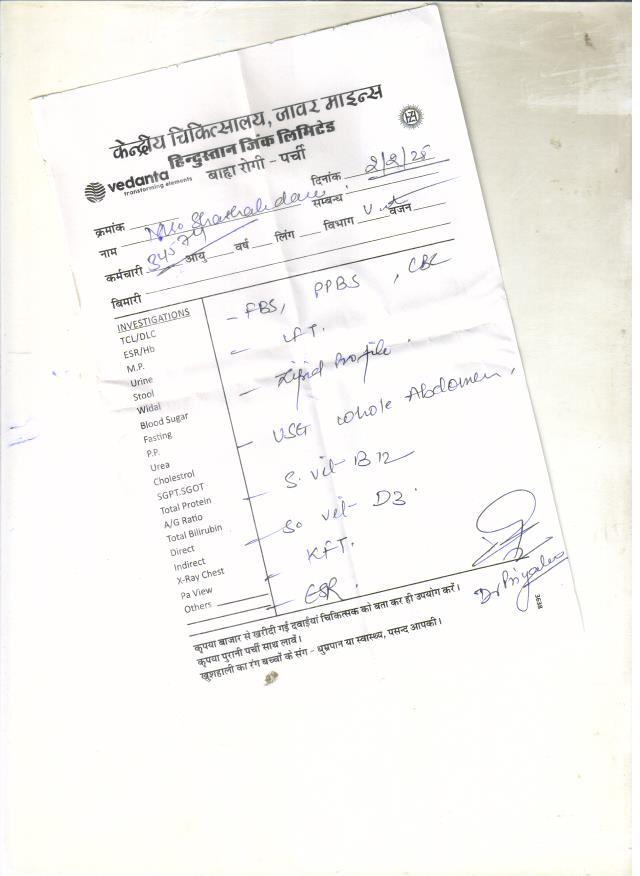 केन्द्रीय चिकित्सालय, जावर माइन्स
हिन्दुस्तान जिंक लिमिटेड
vedanta
transforming elements
बाह्य रोगी - पर्ची
क्रमांक
दिनांक 2/2/25
नाम
सम्बन्ध
कर्मचारी 34574 आयु वर्ष लिंग विभाग वजन
बिमारी
INVESTIGATIONS
TCL/DLC
ESR/Hb
M.P.
Urine
Stool
Widal
Blood Sugar
Fasting
P.P.
Urea
Cholestrol
SGPT.SGOT
Total Protein
A/G Ratio
Total Bilirubin
Direct
Indirect
X-Ray Chest
Pa View
Others
- FBS, PPBS, CBC
- LFT.
- Lipid Profile.
- USG whole Abdomen,
- S. vit B12
- So vit D3.
- KFT.
- ESR.
कृपया बाजार से खरीदी गई दवाईयां चिकित्सक को बता कर ही उपयोग करें।
कृपया पुरानी पर्ची साथ लावें।
खुशहाली का रंग बच्चों के संग - धुम्रपान या स्वास्थ्य, पसन्द आपकी।
3638